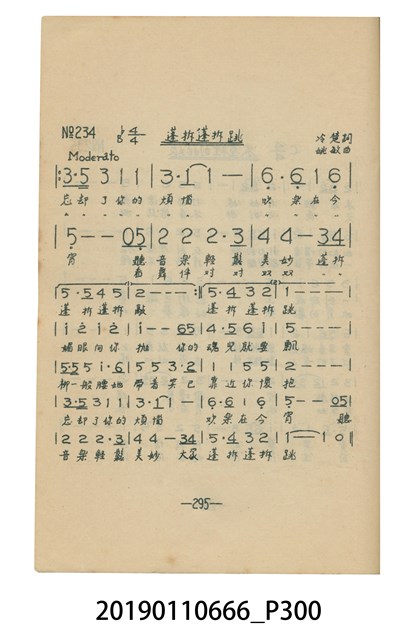 №234 ♭B 4/4 蓬拆蓬拆跳 冷楚詞
Moderato 姚敏曲
‖: 3·5 3 1 1 | 3·1 1 — | 6·6 1 6 |
忘却了你的 煩惱 歡樂在今
5 — — 05 | 2 2 2·3 | 4 4 — 34 |
宵 聽 音樂輕鬆 美妙 蓬拆
看 舞伴對對 双双
| 5·5 4 5 | 2 — — — :‖ 5·4 3 2 | 1 — — — |
蓬拆蓬拆 敲 蓬拆蓬拆 跳
| i 2 i 2 | i — — 65 | 4·5 6 1 | 5 — — — |
媚眼向你 拋 你的 魂兒就要 飄
| 5·5 5 i·6 | 5 5 3·2 | 1 1 5 5 | 2 — — — |
柳一般腰她 帶着笑已 靠近你懷 抱
| 3·5 3 1 1 | 3·1 1 — | 6·6 1 6 | 5 — — 05 |
忘却了你的 煩惱 歡樂在今 宵 聽
| 2 2 2·3 | 4 4 — 34 | 5·4 3 2 | 1 — 1 0 ‖
音樂輕鬆 美妙 大家 蓬拆蓬拆 跳
—295—
20190110666_P300